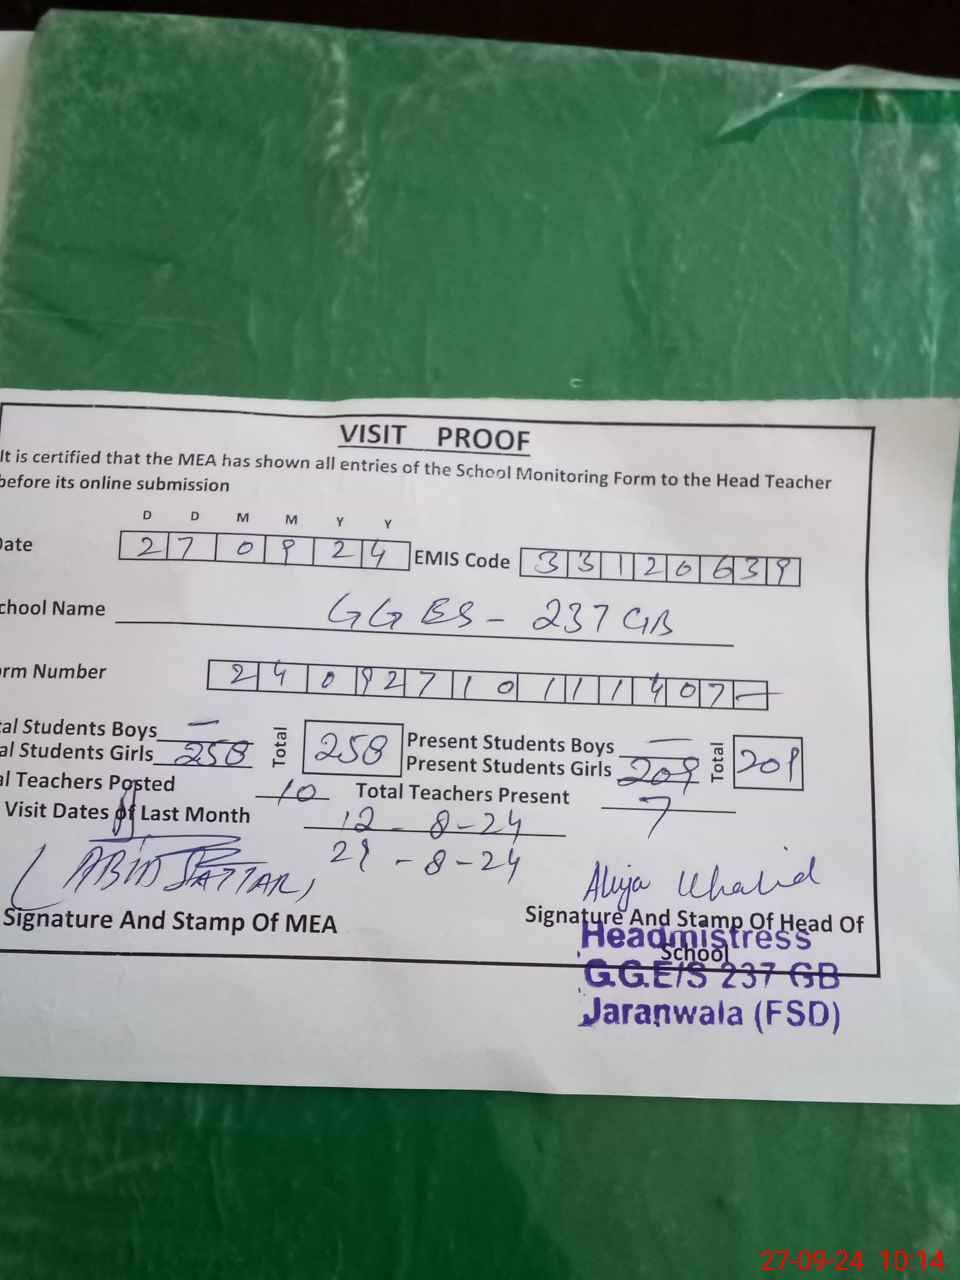 VISIT PROOF
It is certified that the MEA has shown all entries of the School Monitoring Form to the Head Teacher
before its online submission
D D M M Y Y
Date 27 09 24 EMIS Code 33120639
chool Name GGES - 237 GB
orm Number 240927101111407-
tal Students Boys - Total 258 Present Students Boys - Total 209
al Students Girls 258 Present Students Girls 209
al Teachers Posted 10 Total Teachers Present 7
Visit Dates of Last Month 12-8-24
29-8-24
(ABID SATTAR)
Signature And Stamp Of MEA
Signature And Stamp Of Head Of
School
Headmistress
G.G.E/S 237 GB
Jaranwala (FSD)
27-09-24 10:14